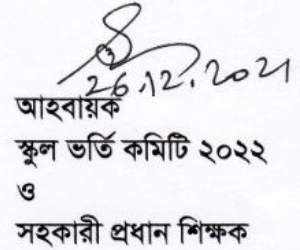 26.12.2021
আহবায়ক
স্কুল ভর্তি কমিটি ২০২২
ও
সহকারী প্রধান শিক্ষক